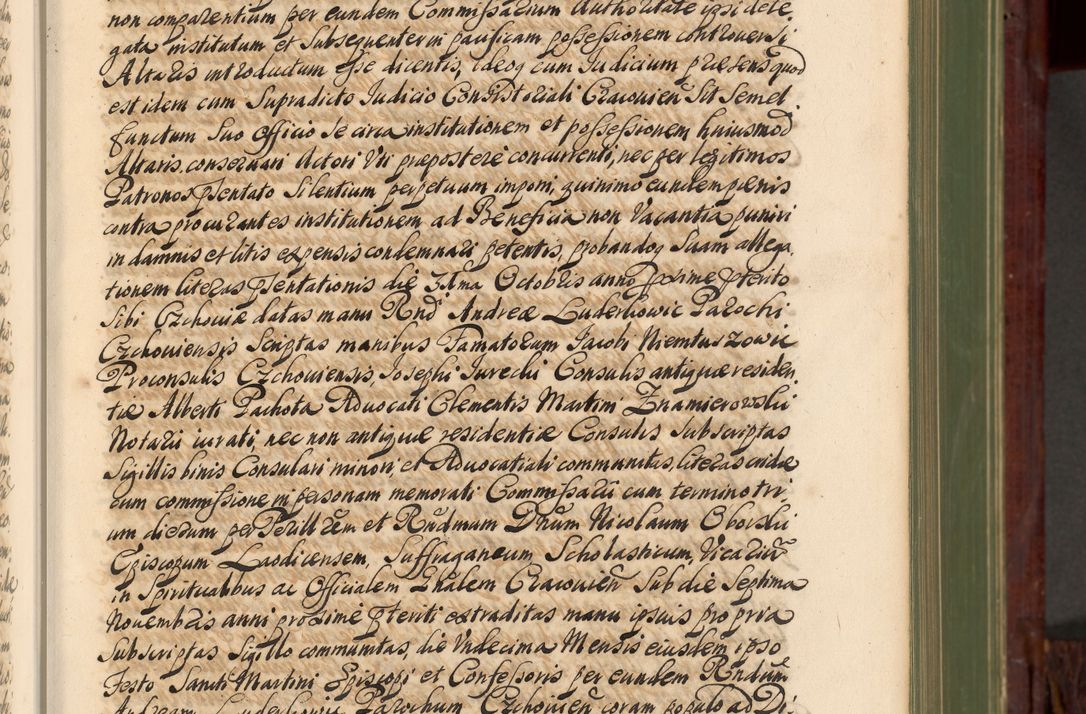 non comparentium per eundem Commissarium Authoritate ipsi dele-
gata institutum et Subsequenter in pacificam possessionem controversi
Altaris introductum esse dicentis, Ideoq cum Iudicium praesens quod
est idem cum Supradicto Iudicio Consistoriali Cracovien Sit Semel
functum Suo officio Se circa institutionem et possessionem huiusmod
Altaris conservari Actori Vti praepostere concurrenti, nec per legitimos
Patronos psentato Silentium perpetuum imponi, quinimo eundem paenis
contra procurantes institutionem ad Beneficia non Vacantia puniri
in damnis et litis expensis condemnari petentis, probandoq Suam allega
tionem literas psentationis die 31ma Octobris anno proxime pterito
Sibi Czchoviae datas manu Rnd Andreae Luderkowic Parochi
Czchoviensis Scriptas manibus Famatorum Iacobi Niemtuszowic
Proconsulis Czchoviensis, Iosephi Iurecki Consulis antiquae residen
tiae Alberti Pachota Advocati Clementis Martini Znamierowski
Notarii iurati, nec non antiquae residentiae Consulis Subscriptas
Sigillis binis Consulari minori, et Advocatiali communitas, literas
cum commissione in personam memorati Commissarii cum termino tri-
um dierum per Perillrem et Rndmum Dnum Nicolaum Oborski
Episcopum Laodicensem, Suffraganeum Scholasticum, Vicariu
in Spiritualibus ac Officialem Gnalem Cracovien Sub die Septima
Novembris anni proxime pteriti extraditas manu ipsius propria
Subscriptas Sigillo communitas, die Undecima Mensis eiusdem ipso
Festo Sancti Martini Episcopi et Confessoris per eundem Rndum
Andream Parochum Czchovien coram populo ad Di-